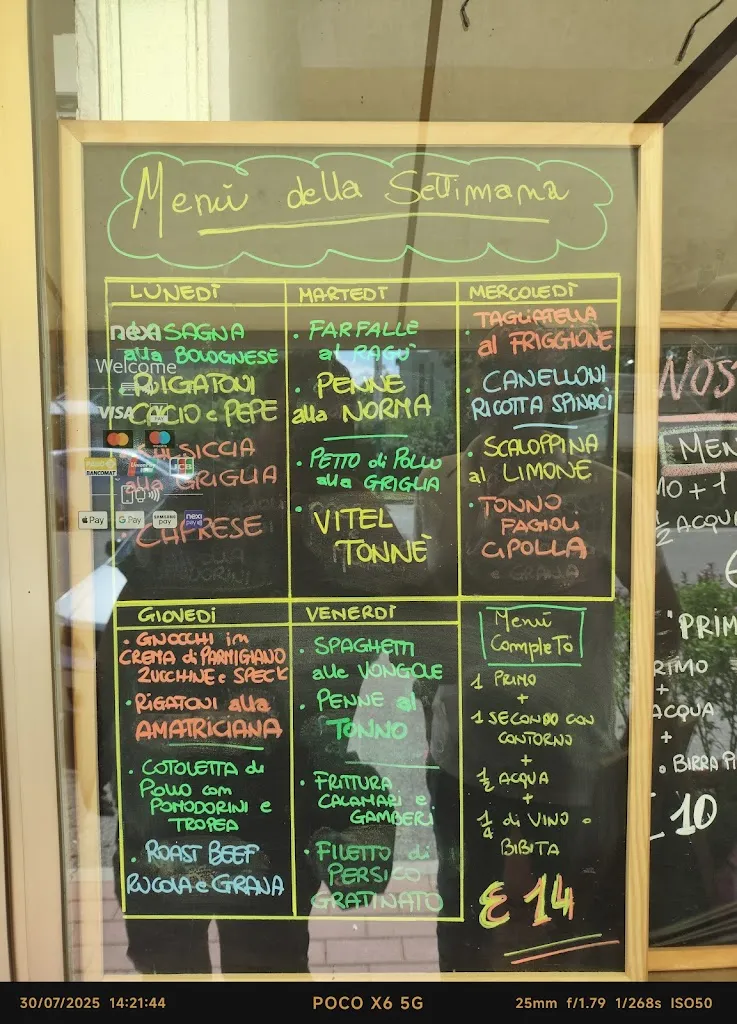 Menù della Settimana
LUNEDÌ
nexi SAGNA
alla BOLOGNESE
Welcome
RIGATONI
VISA CACIO e PEPE
SICCIA
alla GRIGLIA
PAGO BANCOMAT
UnionPay
JCB
Pay
G Pay
SAMSUNG pay
nexi pay
CAPRESE
MARTEDÌ
· FARFALLE
al RAGU'
· PENNE
alla NORMA
· PETTO di POLLO
alla GRIGLIA
· VITEL
TONNÈ
MERCOLEDÌ
· TAGLIATELLA
al FRIGGIONE
· CANELLONI
RICOTTA SPINACI
· SCALOPPINA
al LIMONE
· TONNO
FAGIOLI
CIPOLLA
GRANA
GIOVEDÌ
· GNOCCHI in
CREMA di PARMIGIANO
ZUCCHINE e SPECK
· RIGATONI alla
AMATRICIANA
· COTOLETTA di
POLLO con
POMODORINI e
TROPEA
· ROAST BEEF
RUCOLA e GRANA
VENERDÌ
· SPAGHETTI
alle VONGOLE
· PENNE al
TONNO
· FRITTURA
CALAMARI e
GAMBERI
· FILETTO di
PERSICO
GRATINATO
Menù
Completo
1 PRIMO
+
1 SECONDO CON
CONTORNO
+
1/2 ACQUA
+
1/4 di VINO o
BIBITA
€ 14
NOS
MEN
MO + 1
1/2 ACQU
"PRIM
RIMO
+
ACQUA
+
. BIRRA PI
10
30/07/2025 14:21:44
POCO X6 5G
25mm f/1.79 1/268s ISO50